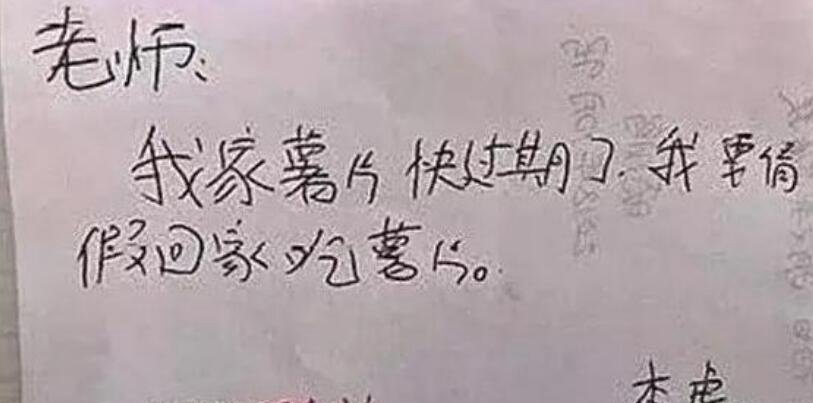 老师:
我家薯片快过期了.我要请
假回家吃薯片。